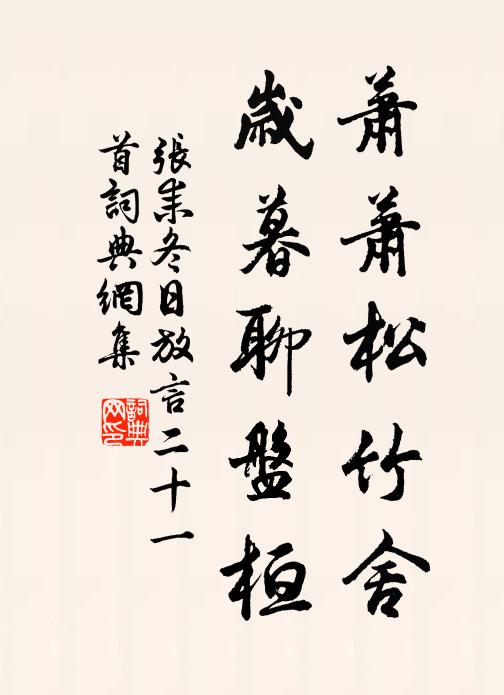 蕭蕭松竹舍
歲暮聊盤桓
張耒冬日放言二十一
首詞典網集
詞典網印